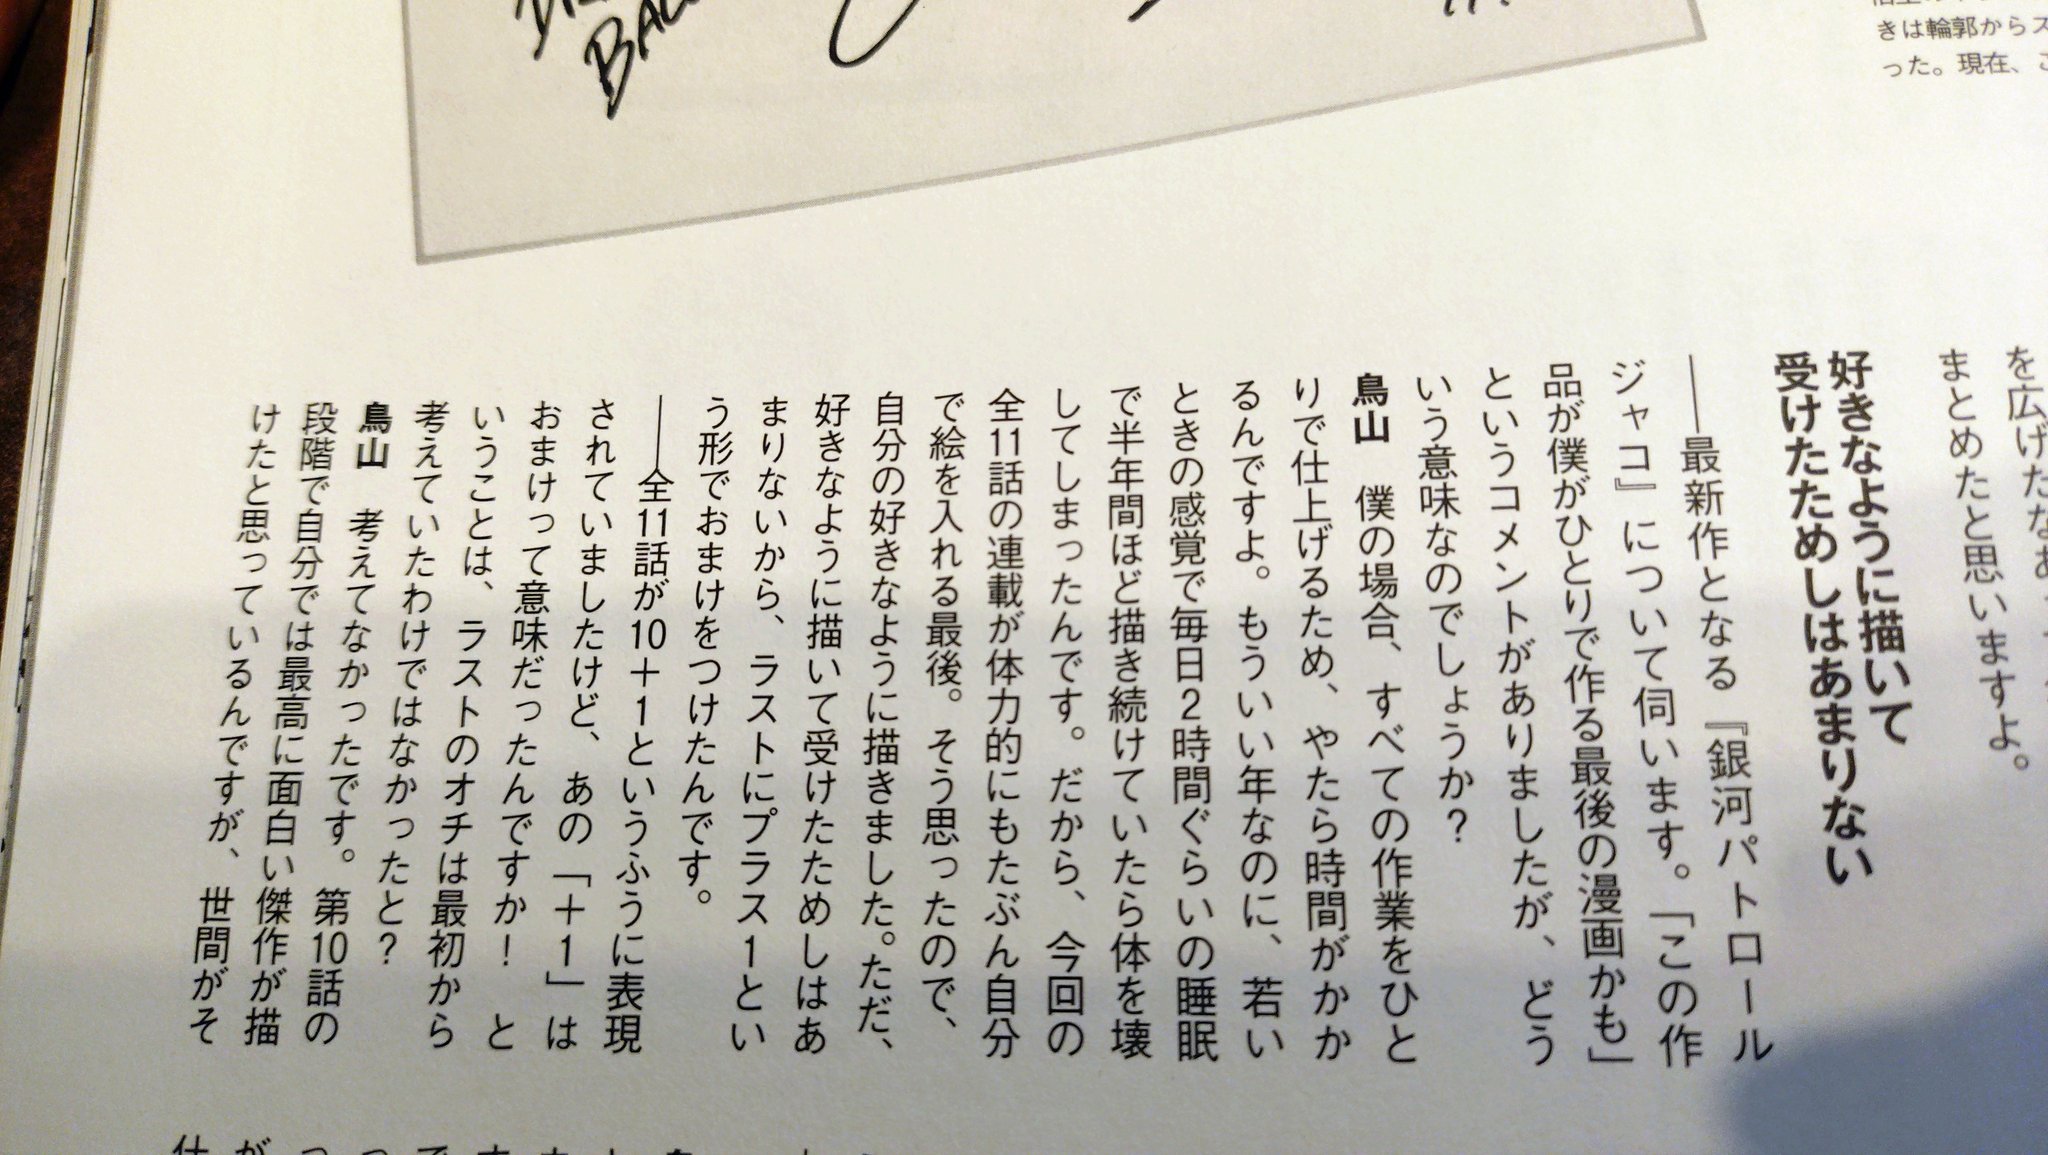 BAL
きは輪郭からス
った。現在、こ
を広げたなあ
まとめたと思いますよ。
好きなように描いて
受けたためしはあまりない
――最新作となる『銀河パトロール
ジャコ』について伺います。「この作
品が僕がひとりで作る最後の漫画かも」
というコメントがありましたが、どう
いう意味なのでしょうか？
鳥山　僕の場合、すべての作業をひと
りで仕上げるため、やたら時間がかか
るんですよ。もういい年なのに、若い
ときの感覚で毎日2時間ぐらいの睡眠
で半年間ほど描き続けていたら体を壊
してしまったんです。だから、今回の
全11話の連載が体力的にもたぶん自分
で絵を入れる最後。そう思ったので、
自分の好きなように描きました。ただ、
好きなように描いて受けたためしはあ
まりないから、ラストにプラス1とい
う形でおまけをつけたんです。
――全11話が10＋1というふうに表現
されていましたけど、あの「＋1」は
おまけって意味だったんですか！　と
いうことは、ラストのオチは最初から
考えていたわけではなかったと？
鳥山　考えてなかったです。第10話の
段階で自分では最高に面白い傑作が描
けたと思っているんですが、世間がそ